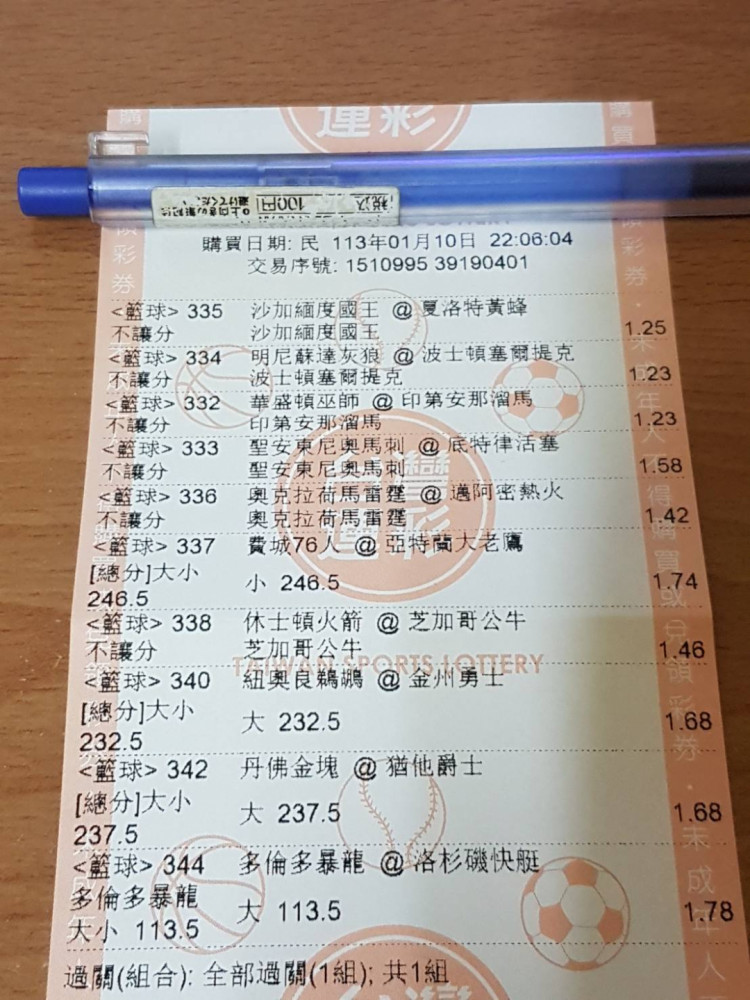 運彩
税込 100円
購買日期: 民 113年01月10日 22:06:04
交易序號: 1510995 39190401
<籃球> 335 沙加緬度國王 @ 夏洛特黃蜂
不讓分 沙加緬度國王 1.25
<籃球> 334 明尼蘇達灰狼 @ 波士頓塞爾提克
不讓分 波士頓塞爾提克 1.23
<籃球> 332 華盛頓巫師 @ 印第安那溜馬
不讓分 印第安那溜馬 1.23
<籃球> 333 聖安東尼奧馬刺 @ 底特律活塞
不讓分 聖安東尼奧馬刺 1.58
<籃球> 336 奧克拉荷馬雷霆 @ 邁阿密熱火
不讓分 奧克拉荷馬雷霆 1.42
<籃球> 337 費城76人 @ 亞特蘭大老鷹
[總分]大小 小 246.5 1.74
246.5
<籃球> 338 休士頓火箭 @ 芝加哥公牛
不讓分 芝加哥公牛 1.46
TAIWAN SPORTS LOTTERY
<籃球> 340 紐奧良鵜鶘 @ 金州勇士
[總分]大小 大 232.5 1.68
232.5
<籃球> 342 丹佛金塊 @ 猶他爵士
[總分]大小 大 237.5 1.68
237.5
<籃球> 344 多倫多暴龍 @ 洛杉磯快艇
多倫多暴龍 大 113.5 1.78
大小 113.5
過關(組合): 全部過關(1組); 共1組